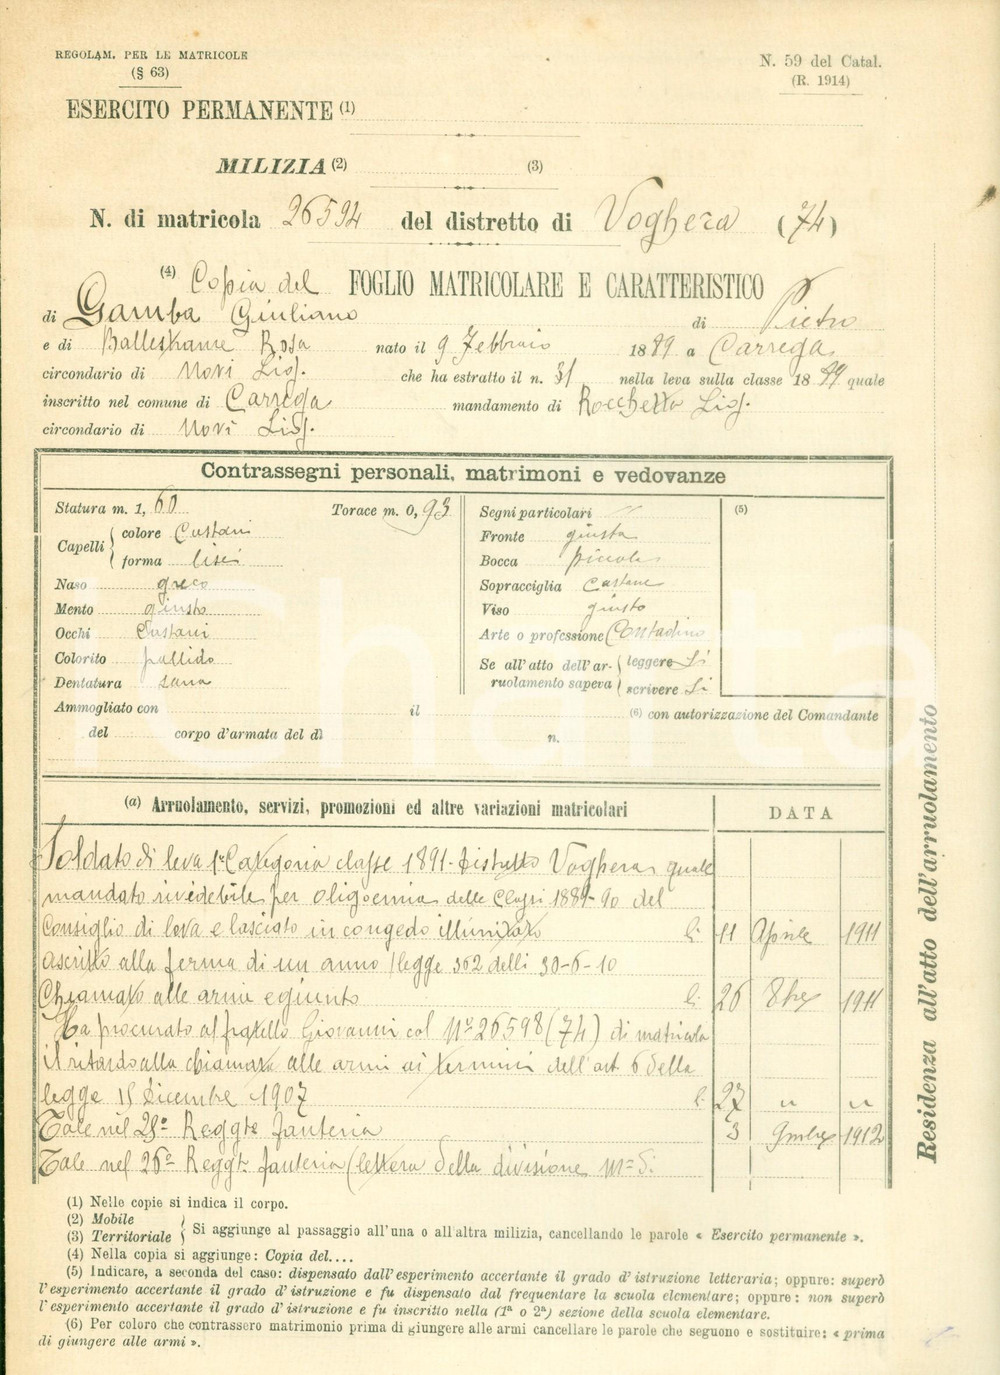 REGOLAM. PER LE MATRICOLE
(§ 63)
N. 59 del Catal.
(R. 1914)
ESERCITO PERMANENTE (1)
MILIZIA (2) (3)
N. di matricola 26594 del distretto di Voghera (74)
(4) Copia del FOGLIO MATRICOLARE E CARATTERISTICO
di Gamba Giuliano di Pietro
e di Rosa nato il 9 Febbraio 1889 a Carrega
circondario di Novi Lig. che ha estratto il n. 31 nella leva sulla classe 1889 quale
inscritto nel comune di Carrega mandamento di Rocchetta Lig.
circondario di Novi Lig.
Contrassegni personali, matrimoni e vedovanze
Statura m. 1, 60 Torace m. 0, 93
Capelli colore Castani
forma lisci
Naso greco
Mento giusto
Occhi Castani
Colorito pallido
Dentatura sana
Segni particolari //
Fronte giusta
Bocca piccola
Sopracciglia Castane
Viso giusto
Arte o professione Contadino
Se all'atto dell'ar- leggere Si
ruolamento sapeva scrivere Si
(5)
Ammogliato con il (6) con autorizzazione del Comandante
del corpo d'armata del dì n.
(a) Arruolamento, servizi, promozioni ed altre variazioni matricolari DATA
Soldato di leva 1ª Categoria classe 1891 Distretto Voghera quale
mandato rivedibile per oligoemia delle Classi 1889-90 del
Consiglio di leva e lasciato in congedo illimitato li 11 Aprile 1911
ascritto alla ferma di un anno (legge 362 delli 30-6-10
Chiamato alle armi e giunto li 26 8bre 1911
Ha procurato al fratello Giovanni col Nº 26598 (74) di matricola
il ritardo alla chiamata alle armi ai termini dell'art 6 della
legge 15 Dicembre 1907 li 27 " "
Tale nel Reggto fanteria 3 9mbre 1912
Tale nel 26º Reggt fanteria (lettera della divisione
Residenza all'atto dell'arruolamento
(1) Nelle copie si indica il corpo.
(2) Mobile
(3) Territoriale Si aggiunge al passaggio all'una o all'altra milizia, cancellando le parole « Esercito permanente ».
(4) Nella copia si aggiunge: Copia del....
(5) Indicare, a seconda del caso: dispensato dall'esperimento accertante il grado d'istruzione letteraria; oppure: superò
l'esperimento accertante il grado d'istruzione e fu dispensato dal frequentare la scuola elementare; oppure: non superò
l'esperimento accertante il grado d'istruzione e fu inscritto nella (1ª o 2ª) sezione della scuola elementare.
(6) Per coloro che contrassero matrimonio prima di giungere alle armi cancellare le parole che seguono e sostituire: « prima
di giungere alle armi ».